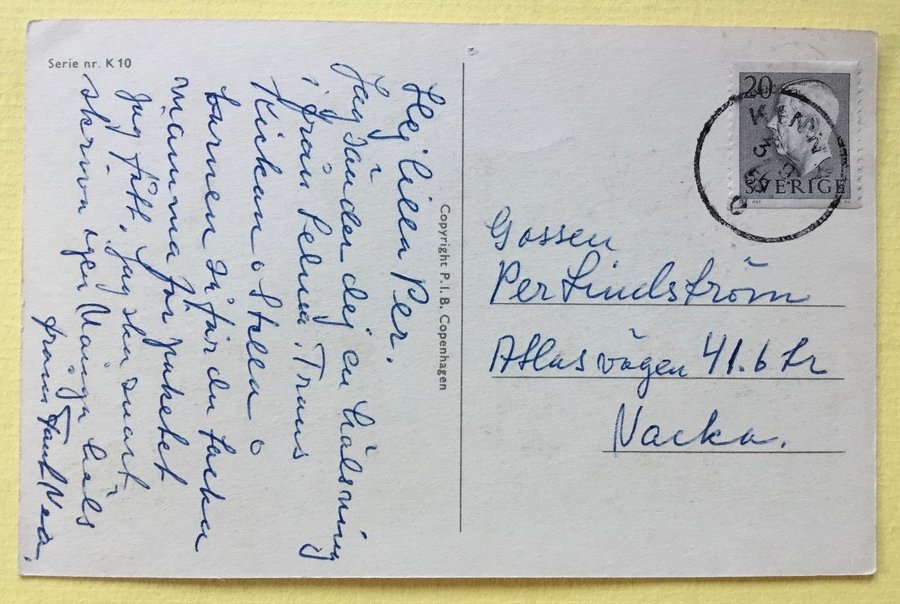 Serie nr. K 10
Hej lilla Per.
Jag sänder dej en hälsning
ifrån Selma. Trans
Kickan o Stella o
barnen så får du tacka
mamma för paketet
jag fått. Jag ska snart
skriva igen Många häls
från Tant Nea.
Copyright P. I. B. Copenhagen
20
SVERIGE
Gossen
Per Lindström
Atlasvägen 41. 6 tr
Nacka.